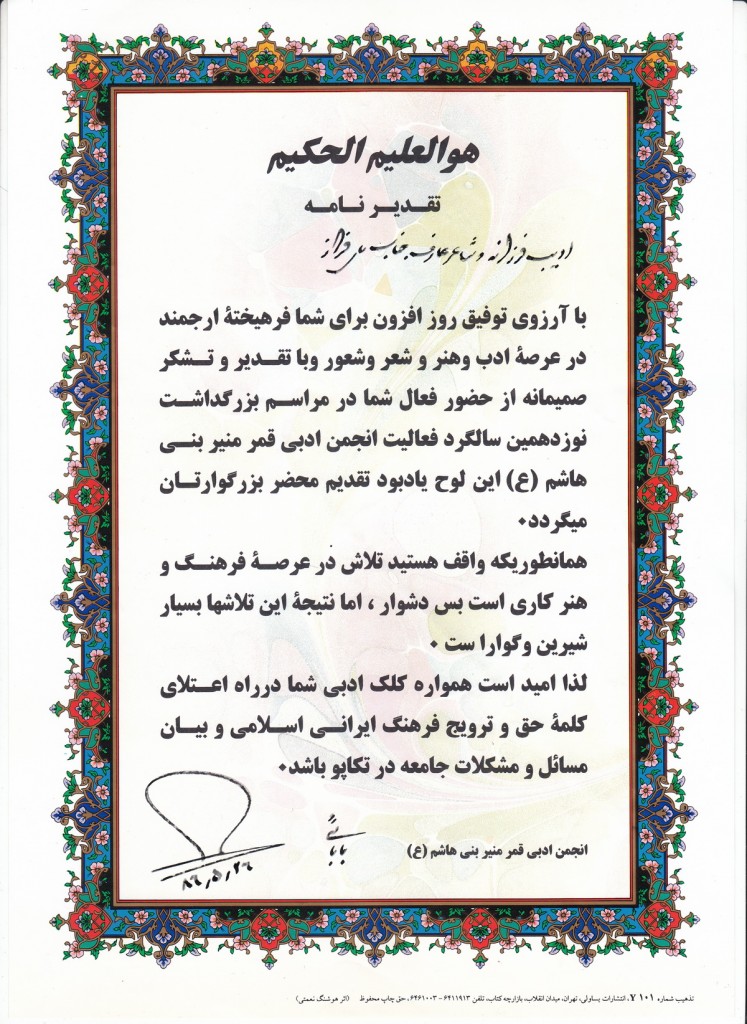 هوالعلیم الحکیم
تقدیر نامه
ادیب فرزانه و شاعر عارف جناب
با آرزوی توفیق روز افزون برای شما فرهیختهٔ ارجمند
در عرصهٔ ادب وهنر و شعر وشعور وبا تقدیر و تشکر
صمیمانه از حضور فعال شما در مراسم بزرگداشت
نوزدهمین سالگرد فعالیت انجمن ادبی قمر منیر بنی
هاشم (ع) این لوح یادبود تقدیم محضر بزرگوارتان
میگردد۰
همانطوریکه واقف هستید تلاش در عرصهٔ فرهنگ و
هنر کاری است بس دشوار ، اما نتیجهٔ این تلاشها بسیار
شیرین وگوارا ست ۰
لذا امید است همواره کلک ادبی شما درراه اعتلای
کلمهٔ حق و ترویج فرهنگ ایرانی اسلامی و بیان
مسائل و مشکلات جامعه در تکاپو باشد۰
انجمن ادبی قمر منیر بنی هاشم (ع)
بابائی
۸۶٫۵٫۲۶
تذهیب شماره ۱۰۱ ۷، انتشارات یساولی، تهران، میدان انقلاب، بازارچه کتاب، تلفن ۶۴۱۱۹۱۳ - ۶۴۶۱۰۰۳، حق چاپ محفوظ (اثر هوشنگ نعمتی)